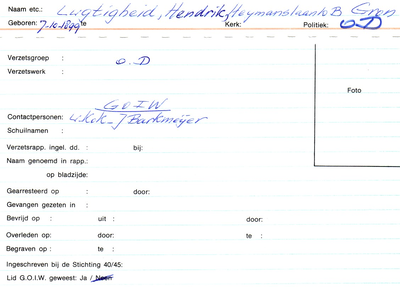 Naam etc.: Lugtigheid, Hendrik, Heymanslaan 10 B Gron
Geboren: 7.10.1899 te Kerk: Politiek: O.D
Verzetsgroep : O.D
Verzetswerk :
Foto
GOIW
Contactpersonen: W.Kok - J Barkmeijer
Schuilnamen :
Verzetsrapp. ingel. dd. : bij:
Naam genoemd in rapp.:
op bladzijde:
Gearresteerd op : door:
Gevangen gezeten in :
Bevrijd op : uit : door:
Overleden op : door: te :
Begraven op : te :
Ingeschreven bij de Stichting 40/45:
Lid G.O.I.W. geweest: Ja / Neen